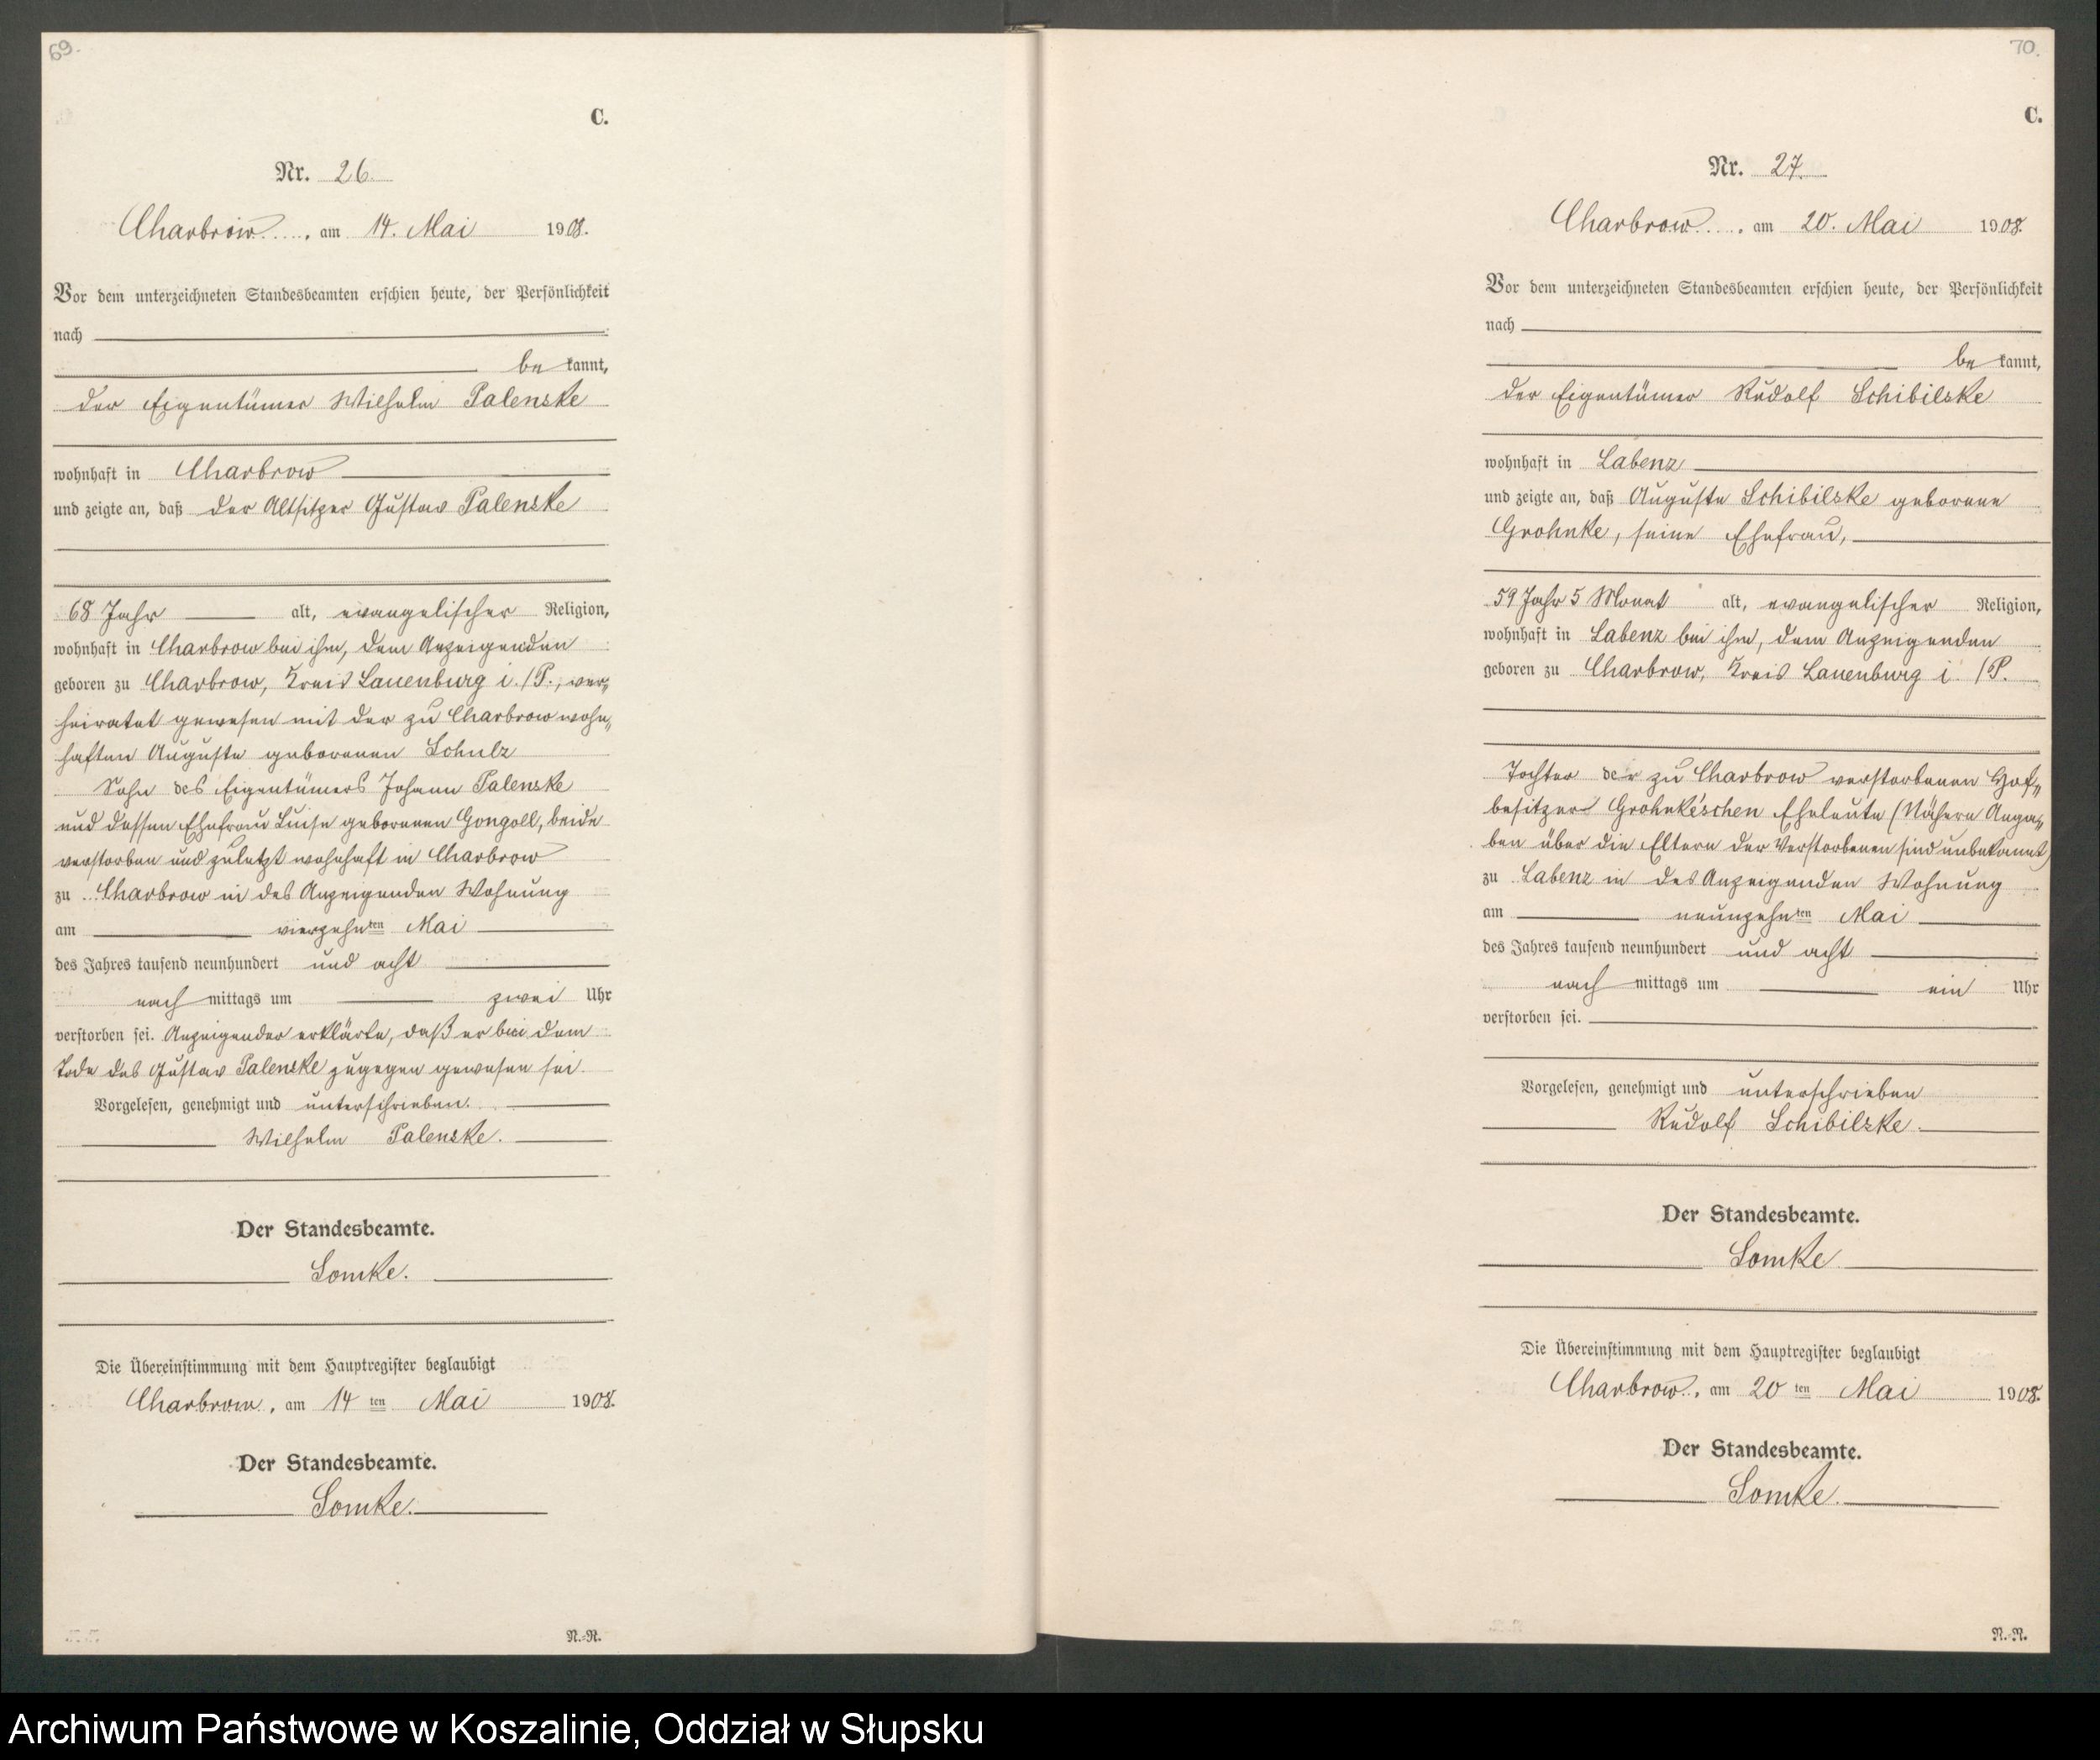 69.
C.
Nr. 26.
Charbrow, am 14. Mai 1908.
Vor dem unterzeichneten Standesbeamten erschien heute, der Persönlichkeit
nach
be kannt,
der Eigentümer Wilhelm Palenske
wohnhaft in Charbrow
und zeigte an, daß der Altsitzer Gustav Palenske
68 Jahr alt, evangelischer Religion,
wohnhaft in Charbrow bei ihm, dem Anzeigenden
geboren zu Charbrow, Kreis Lauenburg i./P., ver„
heiratet gewesen mit der zu Charbrow wohn„
haften Auguste geborenen Schulz
Sohn des Eigentümers Johann Palenske
und dessen Ehefrau Luise geborenen Gongoll, beide
verstorben und zuletzt wohnhaft in Charbrow
zu Charbrow in des Anzeigenden Wohnung
am vierzehnten Mai
des Jahres tausend neunhundert und acht
nach mittags um zwei Uhr
verstorben sei. Anzeigender erklärte, daß er bei dem
Tode des Gustav Palenske zugegen gewesen sei.
Vorgelesen, genehmigt und unterschrieben.
Wilhelm Palenske.
Der Standesbeamte.
Somke.
Die Übereinstimmung mit dem Hauptregister beglaubigt
Charbrow, am 14 ten Mai 1908.
Der Standesbeamte.
Somke.
N.-N.
70.
C.
Nr. 27.
Charbrow, am 20. Mai 1908.
Vor dem unterzeichneten Standesbeamten erschien heute, der Persönlichkeit
nach
be kannt,
der Eigentümer Rudolf Schibilske
wohnhaft in Labenz
und zeigte an, daß Auguste Schibilske geborene
Grohnke, seine Ehefrau,
59 Jahr 5 Monat alt, evangelischer Religion,
wohnhaft in Labenz bei ihm, dem Anzeigenden
geboren zu Charbrow, Kreis Lauenburg i./P.
Tochter der zu Charbrow verstorbenen Hof„
besitzer Grohnke'schen Eheleute (Nähere Anga„
ben über die Eltern der Verstorbenen sind unbekannt)
zu Labenz in des Anzeigenden Wohnung
am neunzehnten Mai
des Jahres tausend neunhundert und acht
nach mittags um ein Uhr
verstorben sei.
Vorgelesen, genehmigt und unterschrieben
Rudolf Schibilske.
Der Standesbeamte.
Somke
Die Übereinstimmung mit dem Hauptregister beglaubigt
Charbrow, am 20 ten Mai 1908.
Der Standesbeamte.
Somke.
N.-N.
Archiwum Państwowe w Koszalinie, Oddział w Słupsku